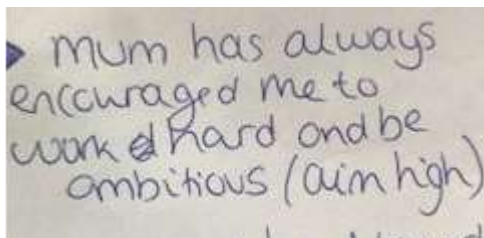 mum has always
encouraged me to
work hard and be
ambitious (aim high)